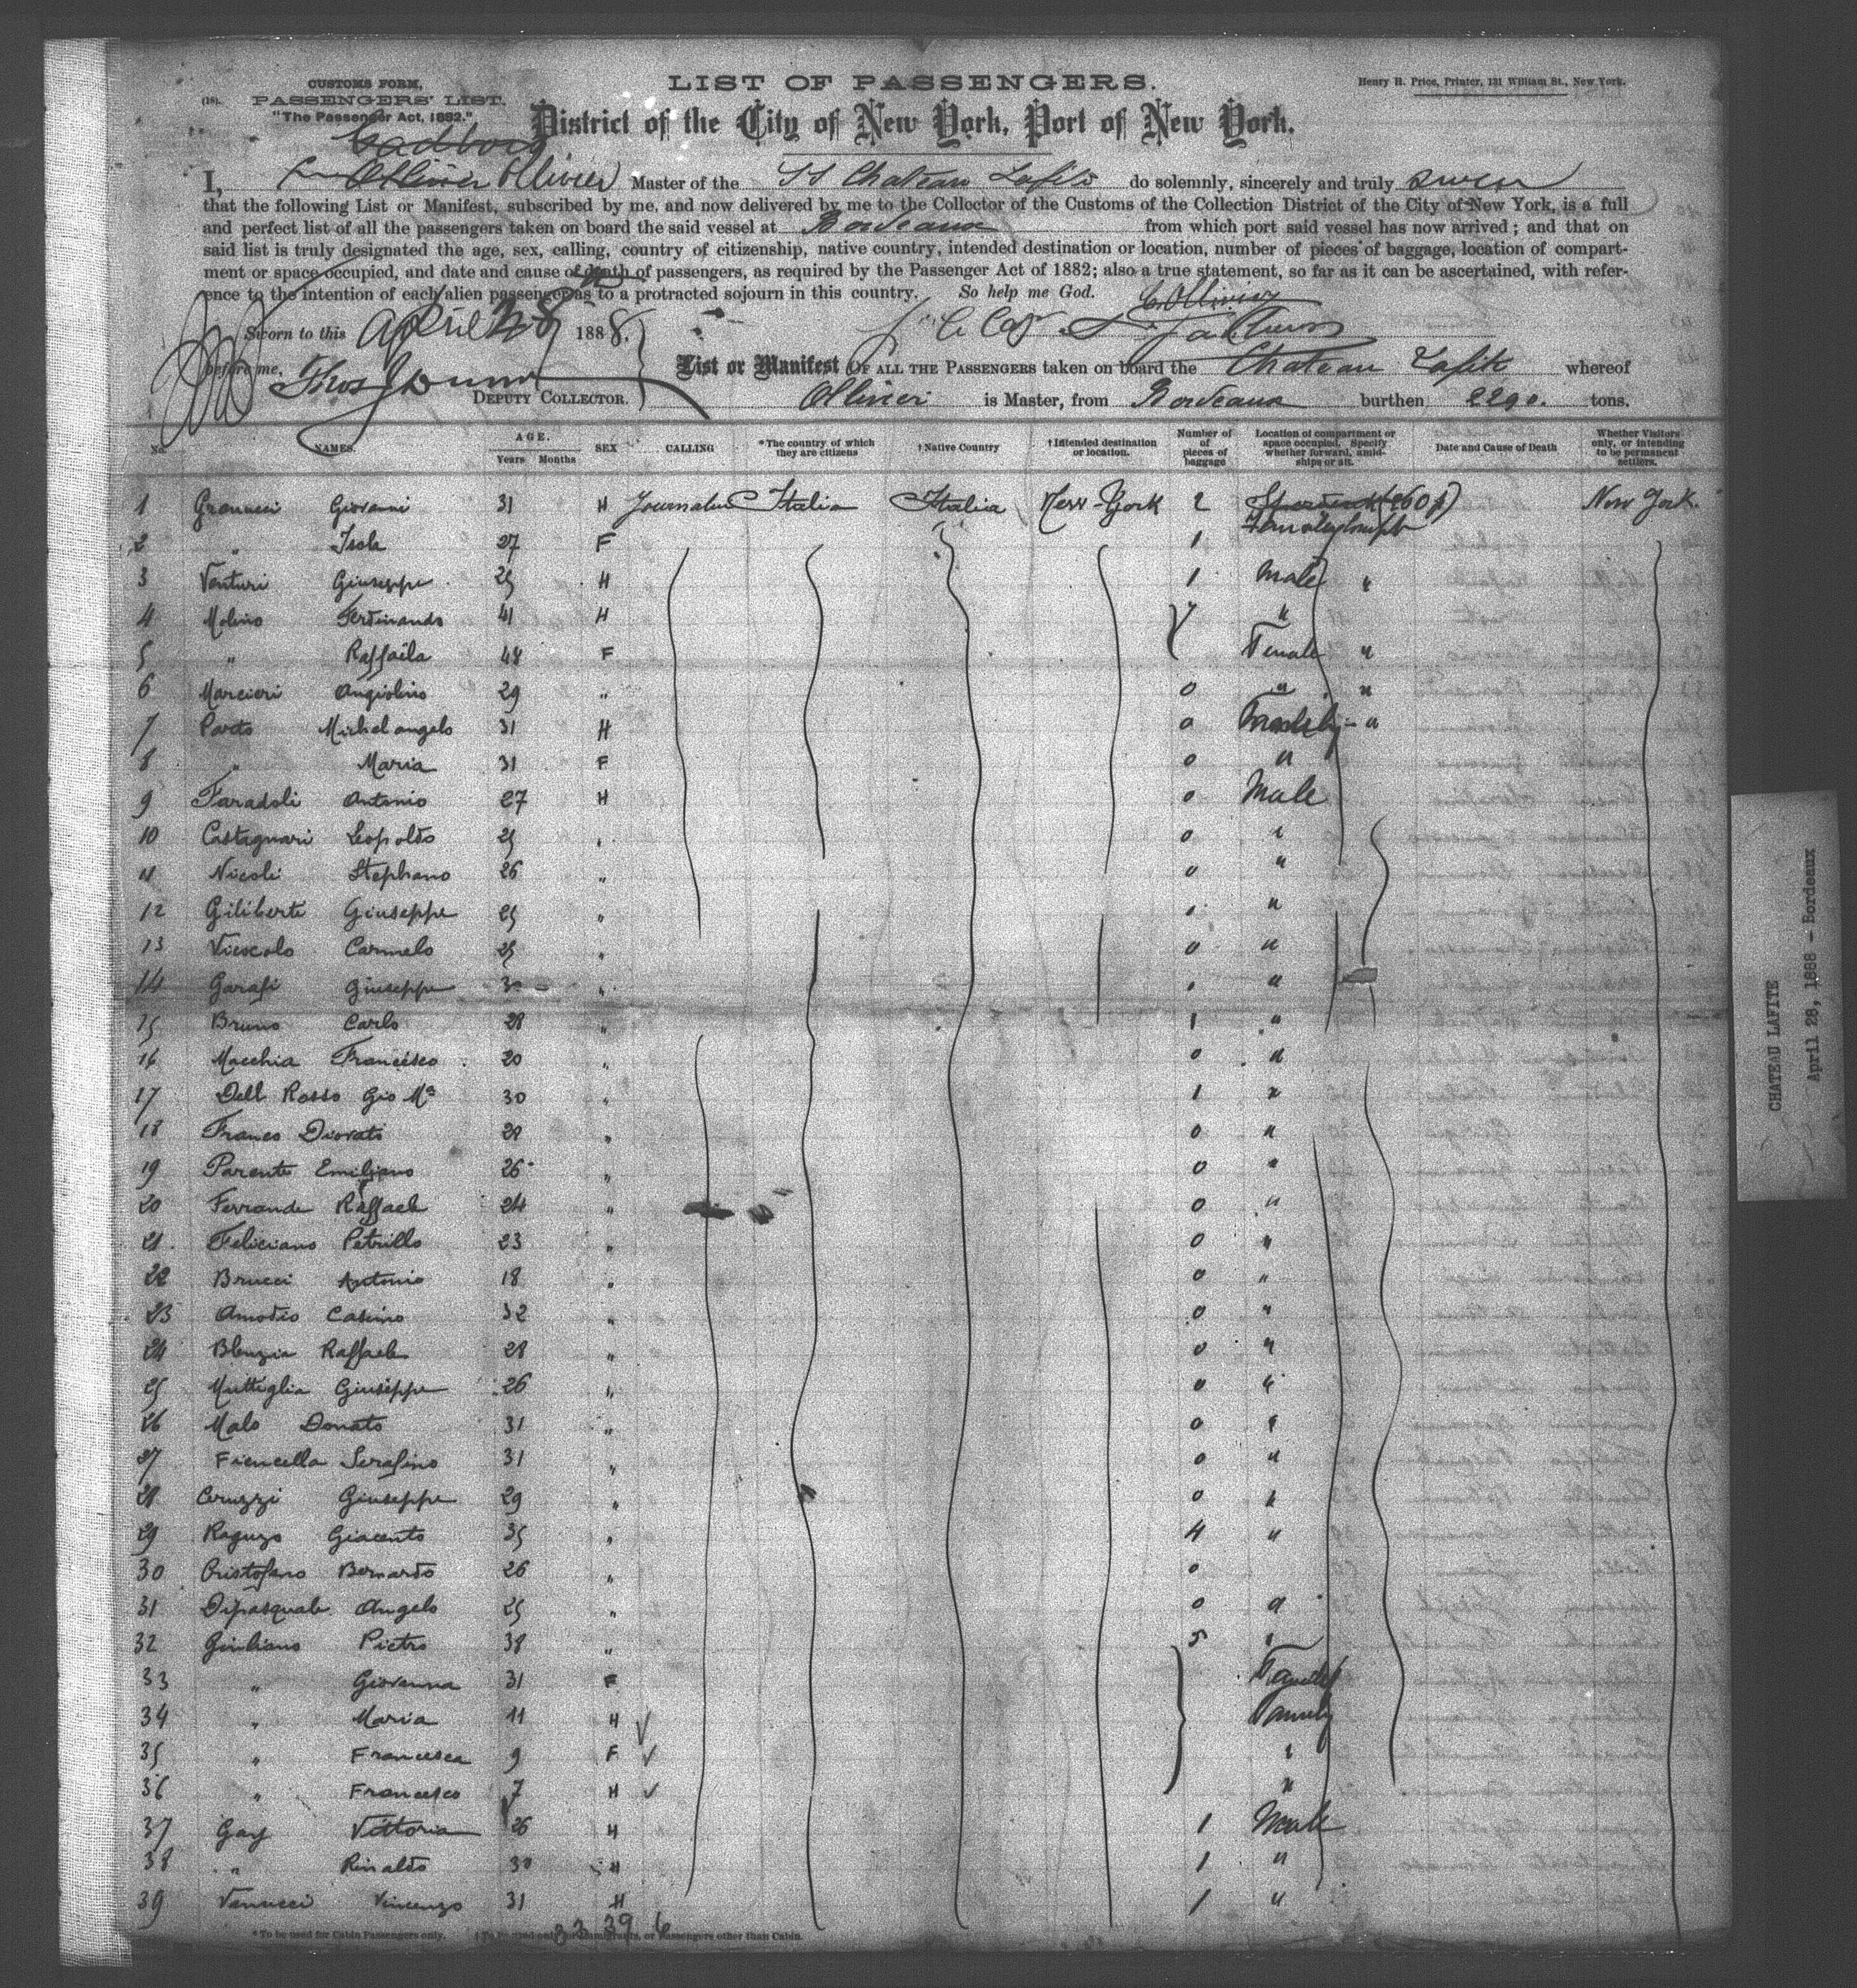 CUSTOMS FORM,
(18). PASSENGERS' LIST.
"The Passenger Act, 1882."
LIST OF PASSENGERS.
Henry R. Price, Printer, 131 William St., New York.
District of the City of New York, Port of New York.
I, Ollivier Ollivier Master of the SS Chateau Lafite do solemnly, sincerely and truly swear
that the following List or Manifest, subscribed by me, and now delivered by me to the Collector of the Customs of the Collection District of the City of New York, is a full
and perfect list of all the passengers taken on board the said vessel at Bordeaux from which port said vessel has now arrived; and that on
said list is truly designated the age, sex, calling, country of citizenship, native country, intended destination or location, number of pieces of baggage, location of compart-
ment or space occupied, and date and cause of death of passengers, as required by the Passenger Act of 1882; also a true statement, so far as it can be ascertained, with refer-
ence to the intention of each alien passenger as to a protracted sojourn in this country. So help me God.
Sworn to this April 28 1888.
before me, Thos J Dunn
DEPUTY COLLECTOR.
List or Manifest OF ALL THE PASSENGERS taken on board the Chateau Lafite whereof
Ollivier is Master, from Bordeaux burthen 2290. tons.
No. NAMES. AGE. Years Months SEX CALLING *The country of which they are citizens †Native Country †Intended destination or location. Number of pieces of baggage Location of compartment or space occupied. Specify whether forward, amidships or aft. Date and Cause of Death Whether Visitors only, or intending to be permanent settlers.
1 Granucci Giovanni 31 H Journalier Italia Italia New-York 2 New York.
2 " Isola 27 F 1
3 Venturi Giuseppe 25 H 1 Male "
4 Molino Ferdinando 41 H "
5 " Raffaela 48 F Female "
6 Marcieri Angiolino 29 " 0 " "
7 Pardo Michelangelo 31 H 0 "
8 " Maria 31 F 0 "
9 Faradoli Antonio 27 H 0 Male
10 Castagnari Leopoldo 25 " 0 "
11 Nicoli Stephano 26 " 0 "
12 Giliberti Giuseppe 25 " 1 "
13 Vicocolo Carmelo 25 " 0 "
14 Garafi Giuseppe 30 " "
15 Bruno Carlo 28 " 1 "
16 Macchia Francesco 20 " 0 "
17 Dell Rosso Gio Ma 30 " 1 "
18 Franco Diovati 28 " 0 "
19 Parente Emiliano 26 " 0 "
20 Ferrande Raffaele 24 " 0 "
21 Feliciano Petrillo 23 " 0 "
22 Brucci Antonio 18 " 0 "
23 Amodio Casimo 32 " 0 "
24 Blenzia Raffaele 28 " 0 "
25 Muttiglia Giuseppe 26 " 0 "
26 Malo Donato 31 " 0 "
27 Fiencella Serafino 31 " 0 "
28 Ceruzzi Giuseppe 29 " 0 "
29 Raguzo Giacento 35 " 4 "
30 Cristofano Bernardo 26 " 0
31 Dipasquale Angelo 25 " 0 "
32 Giuliano Pietro 38 " 5 "
33 " Giovanna 31 F Family
34 " Maria 11 H Family
35 " Francesca 9 F "
36 " Francesco 7 H "
37 Gay Vittoria 26 H 1 Male
38 " Rinaldo 30 H 1 "
39 Vanucci Vincenzo 31 H 1 "
33 39 6
*To be used for Cabin Passengers only. †To be used only for Immigrants, or Passengers other than Cabin.
CHATEAU LAFITE
April 28, 1888 - Bordeaux